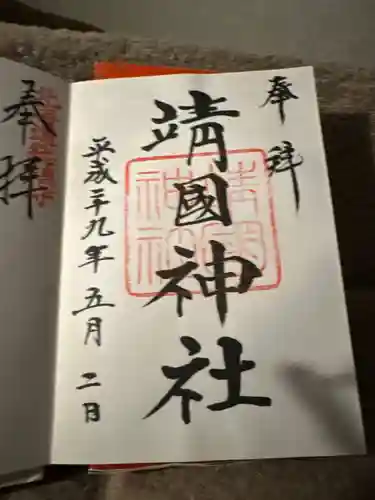 奉拝
靖國神社
靖國神社
平成二十九年五月二日
奉拝